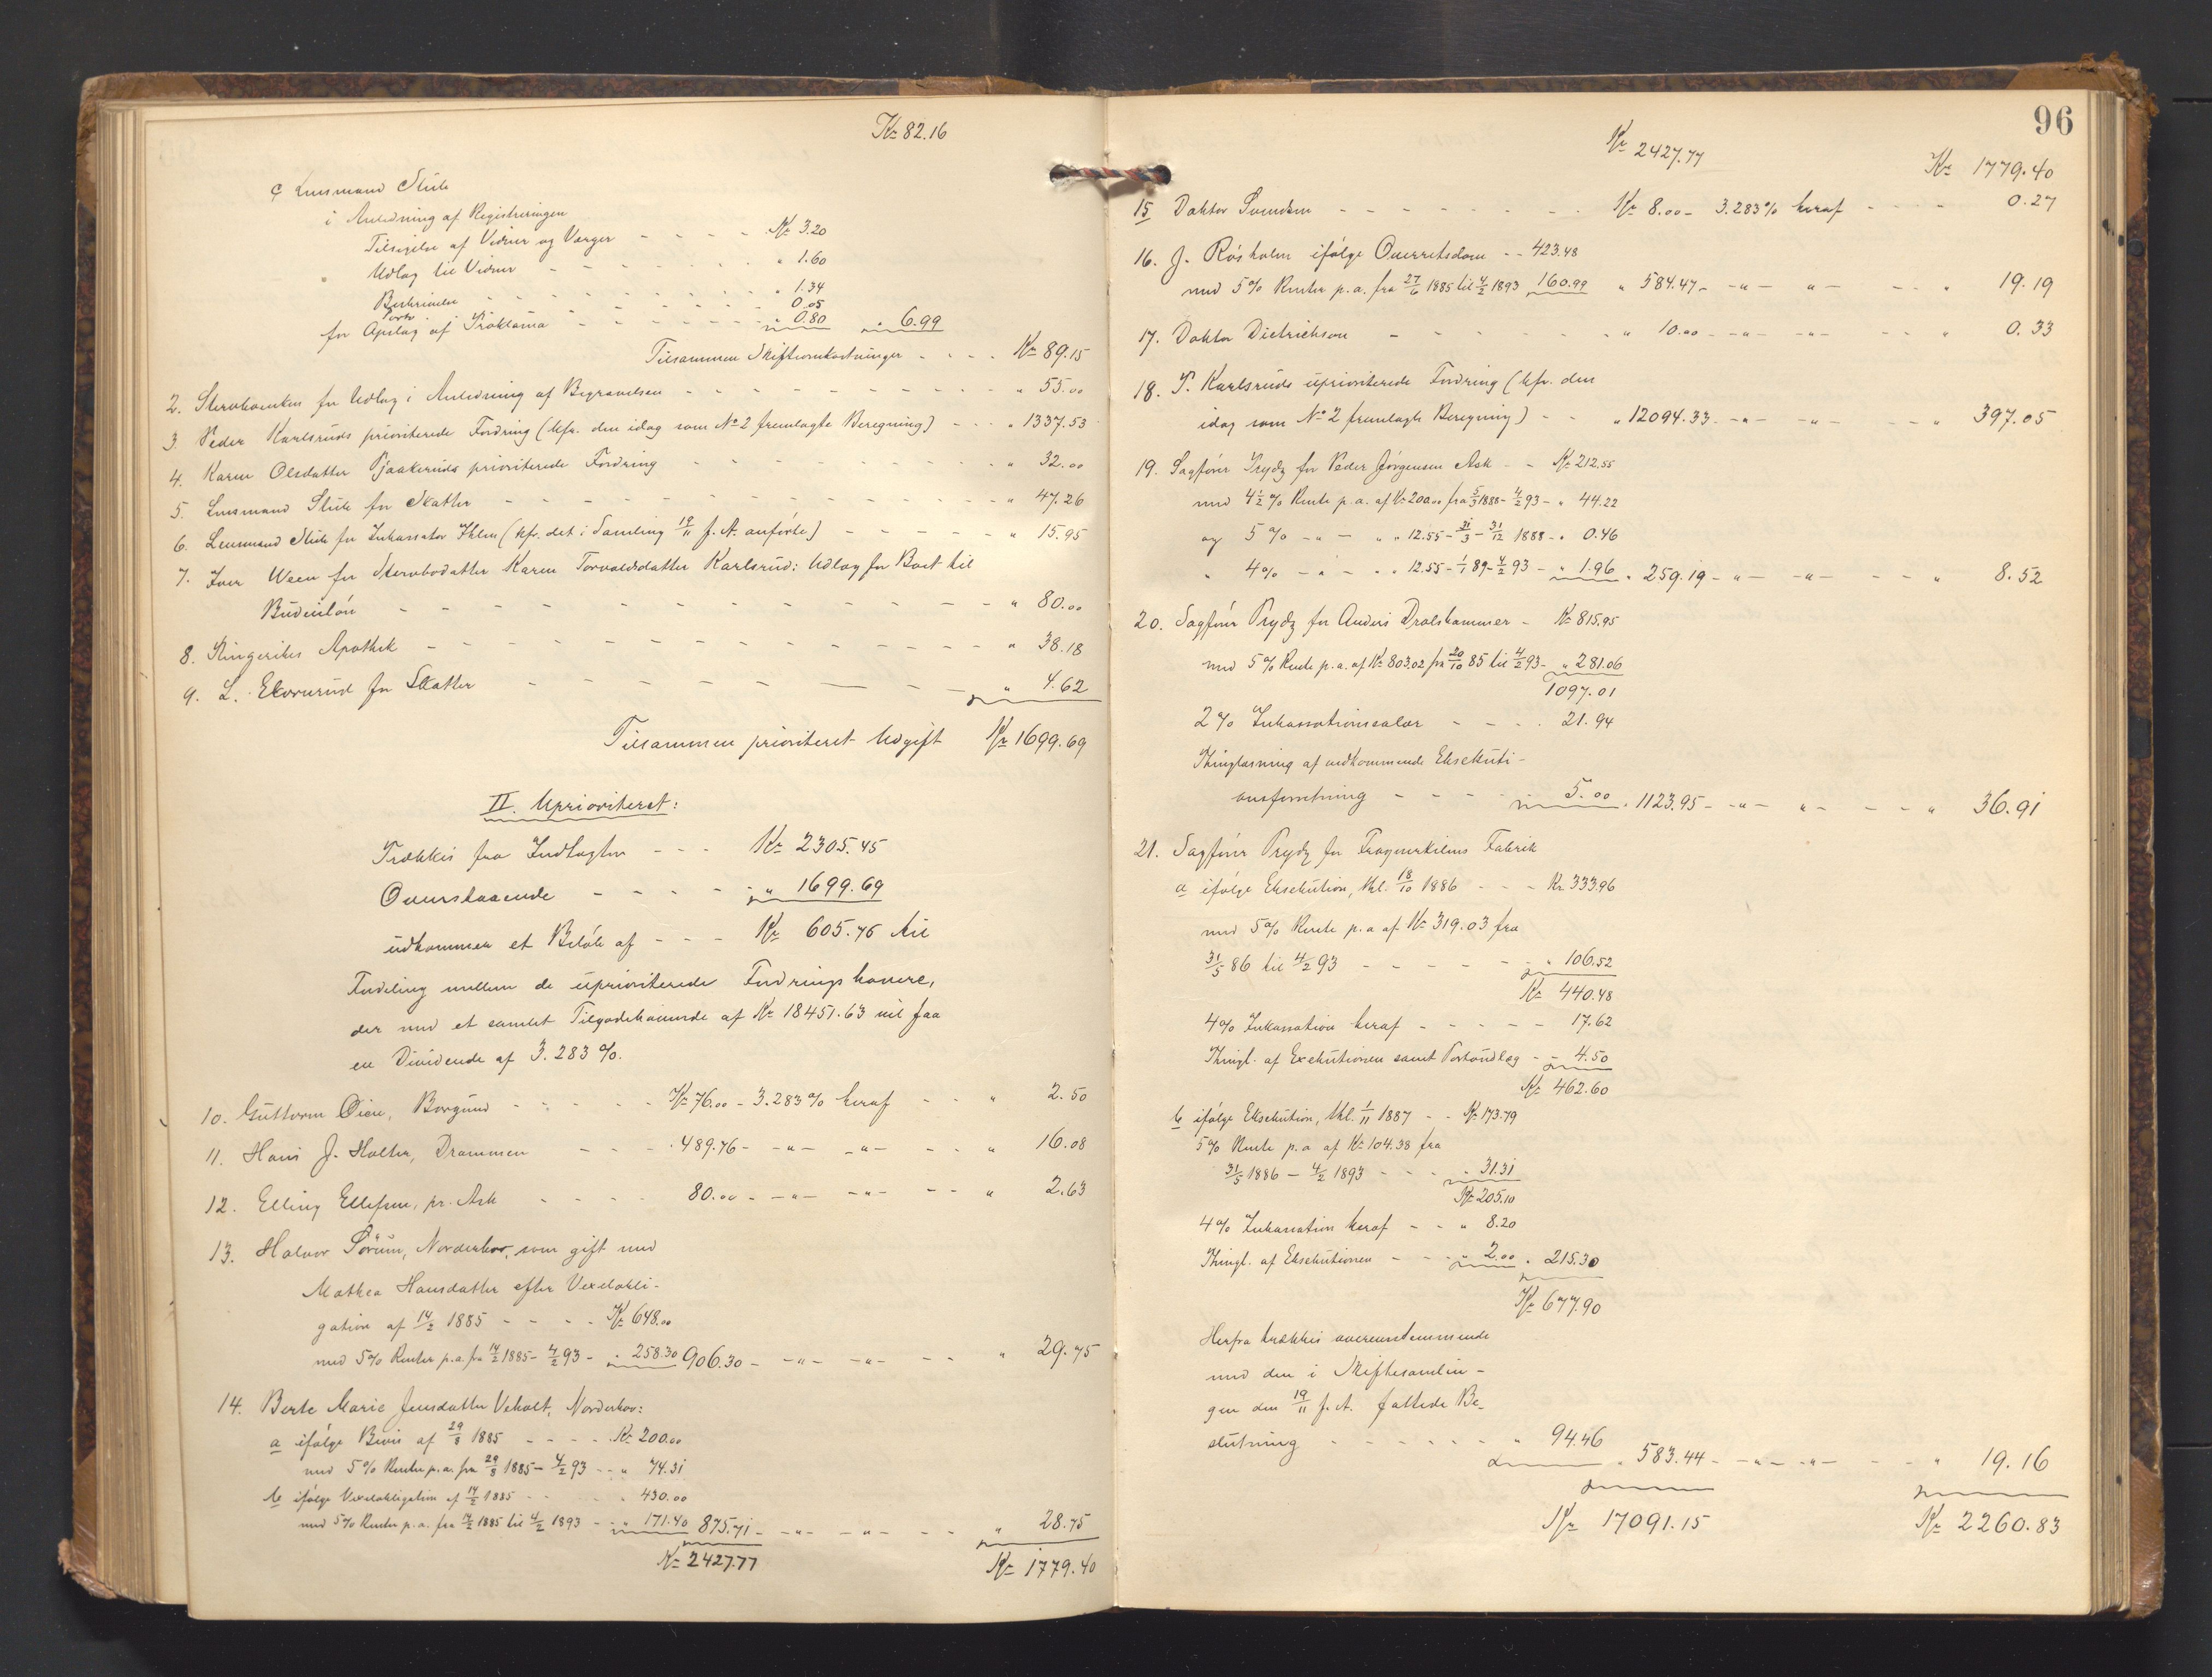 Kr 82.16
c Lensmand Stub
i Anledning af Registreringen
Tilsigelse af Vidner og Værger - - - - Kr 3.20
Udlag til Vidner - - - - - - " 1.60
Beskrivelse - - - - - - " 1.34
Porto - - - - - - 0.05
for Opslag af Proklama - - - - - - " 0.80 " 6.99
Tilsammen Skifteomkostninger - - - - Kr 89.15
2. Stervboenken for Udlæg i Anledning af Begravelsen - - - - - - " 55.00
3. Peder Karlsruds prioriterede Fordring (kfr. den idag som No 2 fremlagte Beregning) - - - " 1337.53
4. Karen Olsdatter Pjaakeruds prioriterede Fordring - - - - - - " 32.00
5. Lensmand Stub for Skatter - - - - - - " 47.26
6. Lensmand Stub for Inkassator Ihlen (kfr. det i Samling 19/11 f. A. anførte) - - - - - " 15.95
7. Iver Ween for Stervbodatter Karen Torvaldsdatter Karlsrud: Udlæg for Boet til
Budeieløn - - - - - - " 80.00
8. Ringerikes Apothek - - - - - - " 38.18
9. L. Ekornrud for Skatter - - - - - - " 4.62
Tilsammen prioriteret Udgift Kr 1699.69
II. Uprioriteret:
Trækkes fra Indtægten - - - Kr 2305.45
Ovenstaaende - - - - - " 1699.69
udkommer et Beløb af - - - Kr 605.76 til
Fordeling mellem de uprioriterede Fordringshavere,
der med et samlet Tilgodehavende af Kr 18451.63 vil faa
en Dividende af 3.283 %.
10. Guttorm Øien, Borgund - - - - - Kr 76.00 - 3.283% heraf - - " 2.50
11. Hans J. Holter, Drammen - - - " 489.76 - -"- -"- - - " 16.08
12. Elling Ellefsen, pr. Ask - - - - 80.00 - -"- -"- - - " 2.63
13. Halvor Sørum, Norderhov, som gift med
Mathea Hansdatter efter Vexelobli-
gation af 14/2 1885 - - - - Kr 648.00
med 5% Renter p.a. fra 14/2 1885 - 4/2 93 - " 258.30 906.30 - -"- -"- - - " 29.75
14. Berte Marie Jensdatter Veholt, Norderhov:
a ifølge Bevis af 29/8 1885 - - - - Kr 200.00
med 5% Renter p.a. fra 29/8 1885 - 4/2 93 - - " 74.31
b ifølge Vexelobligation af 14/2 1885 - - - " 430.00
med 5% Renter p.a. fra 14/2 1885 til 4/2 1893 - - " 171.40 875.71 - -"- -"- - - " 28.75
Kr 2427.77 Kr 1779.40
96
Kr 2427.77 Kr 1779.40
15 Doktor Svendsen - - - - - - - Kr 8.00 - 3.283% heraf - - - - 0.27
16. J. Røsholm ifølge Overretsdom - - 423.48
med 5% Renter p.a. fra 27/6 1885 til 4/2 1893 160.99 " 584.47 - -"- "- - - " 19.19
17. Doktor Dietrichson - - - - - - " 10.00 - -"- -"- - - " 0.33
18. P. Karlsruds uprioriterede Fordring (kfr. den
idag som No 2 fremlagte Beregning) - - " 12094.33 - -"- -"- - - " 397.05
19. Sagfører Prydz for Peder Jørgensen Ask - - Kr 212.55
med 4½ % Rente p.a. af Kr 200.00 fra 5/3 1888 - 4/2 93 - " 44.22
og 5% -"- " " 12.55 - 31/3 - 31/12 1888 - " 0.46
" 4% -"- " " 12.55 - 1/1 89 - 4/2 93 - " 1.96 " 259.19 - -"- -"- - - " 8.52
20. Sagfører Prydz for Anders Drolshammer - Kr 815.95
med 5% Rente p.a. af Kr 803.02 fra 20/10 85 til 4/2 93 - " 281.06
1097.01
2% Inkassationssalær - - - - 21.94
Thinglæsning af vedkommende Eksekuti-
onsforretning - - - - - 5.00 " 1123.95 - -"- "- - - " 36.91
21. Sagfører Prydz for Frognerkilens Fabrik
a ifølge Eksekution, Bkl. 18/10 1886 - - - Kr. 333.96
med 5% Rente p.a af Kr 319.03 fra
31/5 86 til 4/2 93 - - - - - - " 106.52
Kr 440.48
4% Inkassation heraf - - - - - 17.62
Thingl. af Exekutionen samt Portoudlæg - - 4.50
Kr 462.60
b ifølge Eksekution, Bkl. 1/11 1887 - - Kr 173.79
5% Rente p.a af Kr 104.38 fra
31/5 1886 - 4/2 1893 - - - " 31.31
Kr 205.10
4% Inkassation heraf - - " 8.20
Thingl. af Eksekutionen - - - " 2.00 " 215.30
Kr 677.90
Herfra trækkes overensstemmende
med den i Skiftesamlin-
gen den 19/11 f. A. fattede Be-
slutning - - - - - - " 94.46
" 583.44 - -"- -"- - - " 19.16
Kr 17091.15 Kr 2260.83